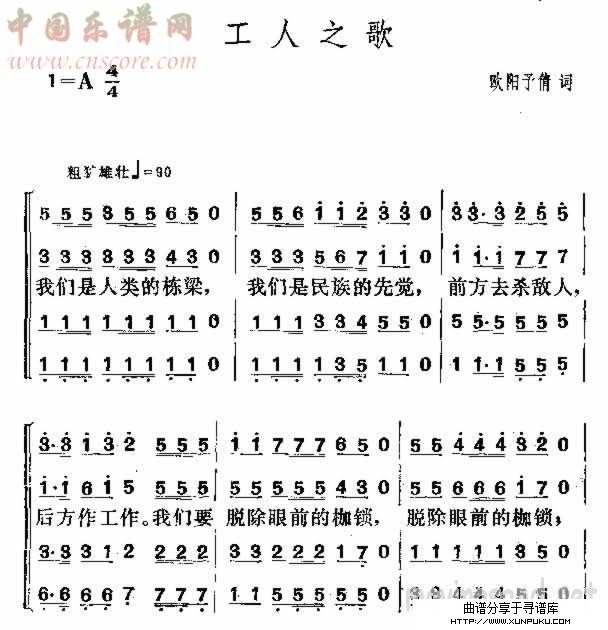 中国乐谱网
www.cnscore.com
工人之歌
1=A 4/4
欧阳予倩 词
粗犷雄壮♩=90
5 5 5 3 5 5 6 5 0 | 5 5 6 i i 2 3 3 0 | 3 3· 3 2 5 5
3 3 3 3 3 3 4 3 0 | 3 3 3 5 6 7 i i 0 | i i· i 7 7 7
我们是人类的栋梁， 我们是民族的先觉， 前方去杀敌人，
1 1 1 1 1 1 1 1 0 | 1 1 1 3 3 4 5 5 0 | 5 5· 5 5 5 5
1 1 1 1 1 1 1 1 0 | 1 1 1 1 3 5 1 1 0 | 1 1· 1 5 5 5
3· 3 i 3 2 5 5 5 | i i 7 7 7 6 5 0 | 5 5 4 4 4 3 2 0
i· i 6 i 5 5 5 5 | 5 5 5 5 5 4 3 0 | 5 5 6 6 6 i 7 0
后方作工作。我们要 脱除眼前的枷锁， 脱除眼前的枷锁；
3· 3 3 3 2 2 2 2 | 3 3 2 2 2 1 1 0 | 1 1 1 1 1 3 5 0
6· 6 6 6 7 7 7 7 | 3 3 4 4 4 5 5 0
曲谱分享于寻谱库
WWW.XUNPUKU.COM